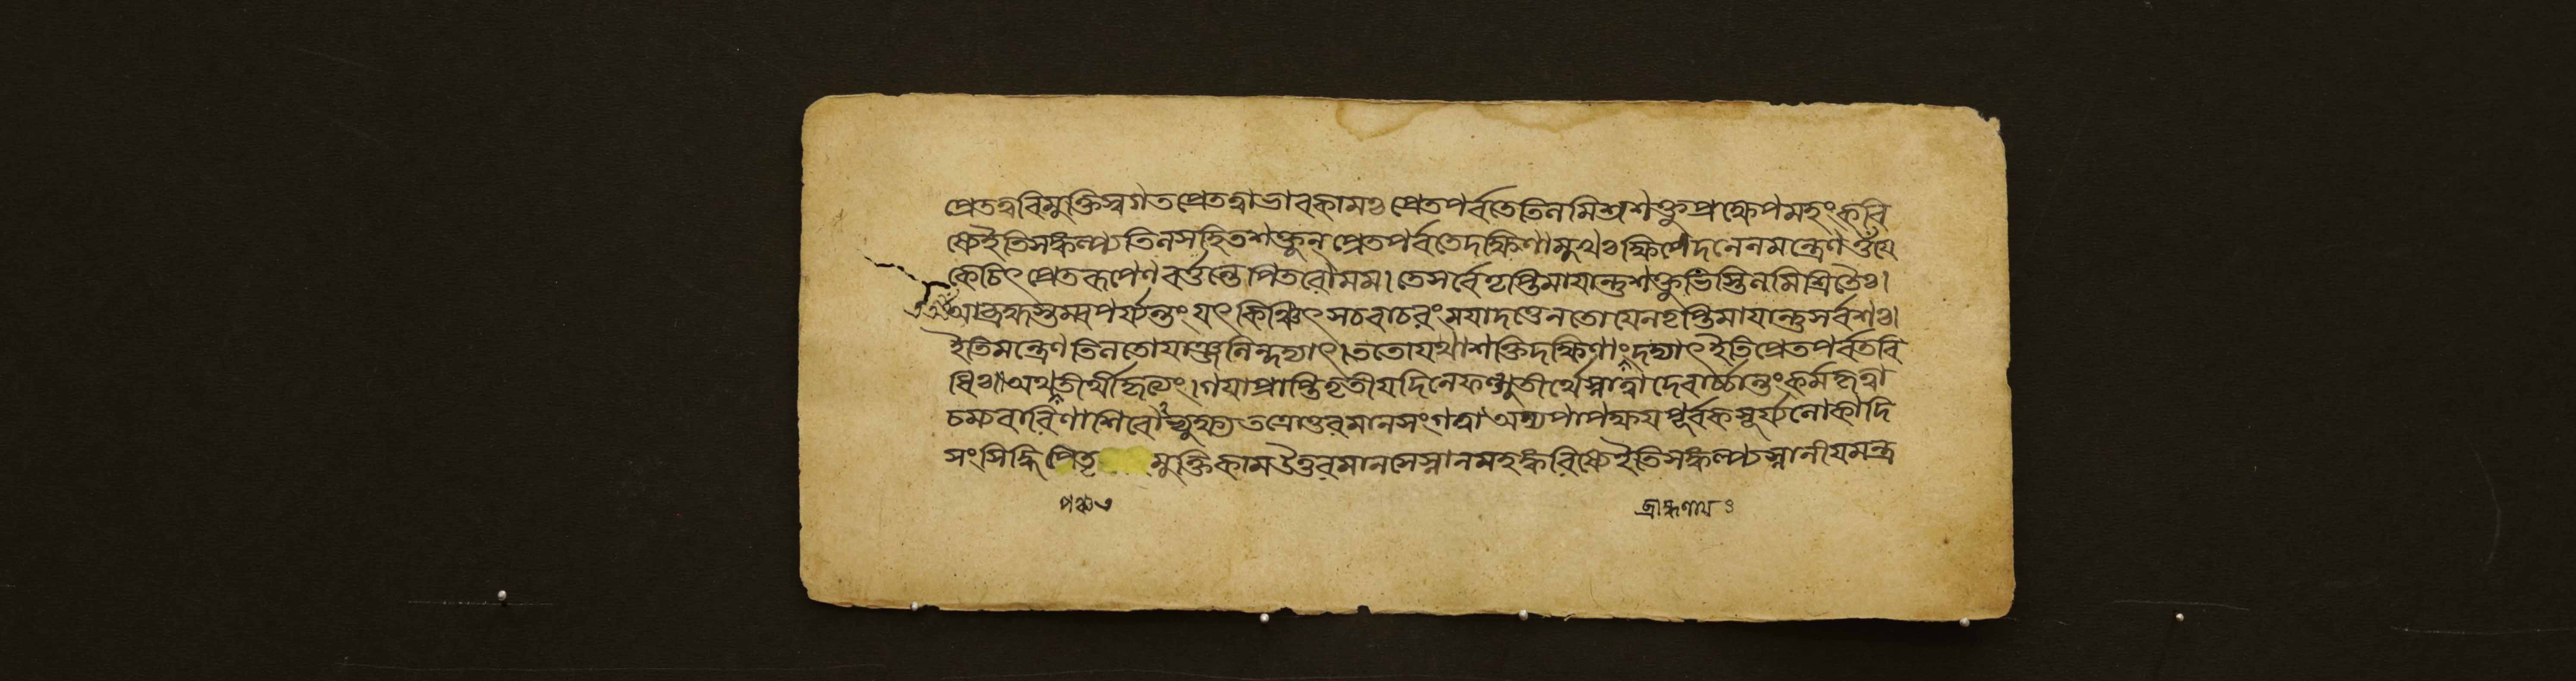 প্রেতত্ববিমুক্তিস্বগতপ্রেতত্বাভাবকামঃ প্রেতপর্বতেতিলমিশ্রশক্তুপ্রক্ষেপমহংকরি
ষ্যেইতিসঙ্কল্প্যতিলসহিতশক্তূন্ প্রেতপর্বতেদক্ষিণামুখঃক্ষিপেদনেনমন্ত্রেণওঁযে
কেচিৎ প্রেতরূপেণ বর্ত্তন্তে পিতরোমম। তেসর্বেতৃপ্তিমাযান্তুশক্তুভিস্তিলমিশ্রিতৈঃ।
আব্রহ্মস্তম্বপর্য্যন্তং যৎ কিঞ্চিৎ সচরাচরং মযাদত্তেনতোযেনতৃপ্তিমাযান্তুসর্বশঃ।
ইতিমন্ত্রেণতিলতোযাঞ্জলিন্দদ্যাৎ।ততোযথাশক্তিদক্ষিণাংদদ্যাৎইতিপ্রেতপর্বতবি
ধিঃ॥অথতীর্থ গযাপ্রাপ্তিতৃতীযদিনেফল্গুতীর্থেস্নাত্বাদেবার্চ্চান্তংকর্মকৃত্বা
বারিণাশিরোভ্যুক্ষ্য তত্রোত্তরমানসংগত্বা অদ্যপাপক্ষযপূর্বকসূর্য্যলোকাদি
সংসিদ্ধিপিতৃমুক্তিকামউত্তরমানসেস্নানমহঙ্করিষ্যেইতিসঙ্কল্প্যস্নানীযমন্ত্র
পঞ্চ
ব্রাহ্মণায ৩